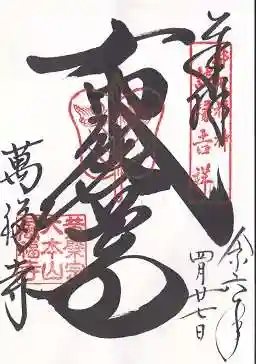 奉拝
六年
四月廿七日
布袋尊
萬福寺
黄檗宗
大本山
萬福寺
吉祥